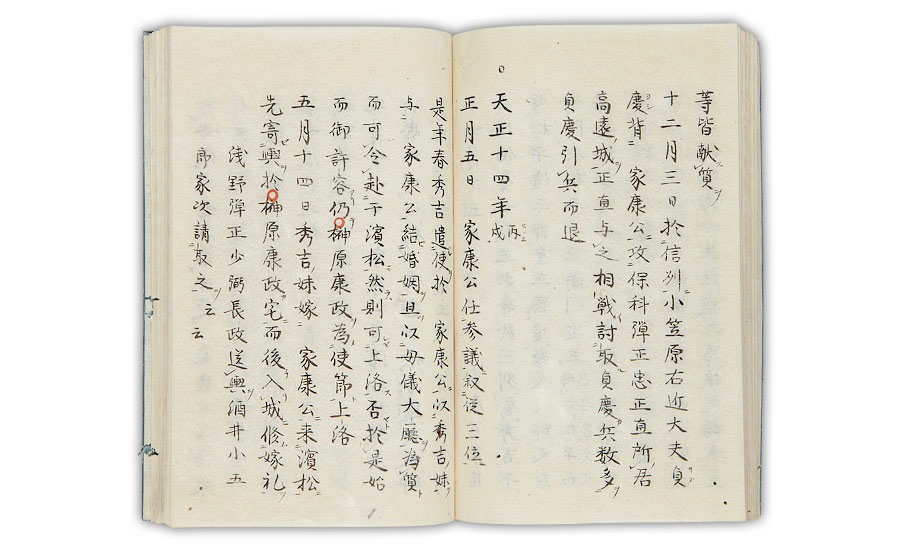 等皆献質
十二月三日於信州小笠原右近大夫貞
慶背 家康公攻保科弾正忠正直所居
高遠城正直与之相戦討取貞慶兵数多
貞慶引兵而退
天正十四年丙戌
正月五日 家康公任参議叙従三位
是年春秀吉遣使於 家康公以秀吉妹
与 家康公結婚姻且以母儀大廳為質
而可令赴于濱松然則可上洛否於是始
而御許容仍榊原康政為使節上洛
五月十四日秀吉妹嫁 家康公来濱松
先寄輿於榊原康政宅而後入城修嫁礼
浅野弾正少弼長政送輿酒井小五
郎家次請取之云云